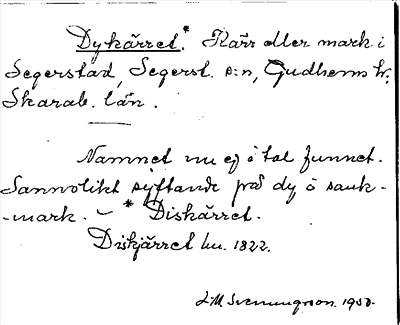 Dykärret.* Kärr eller mark i
Segerstad, Segerst. s:n, Gudhems hr,
Skarab. län.
Namnet nu ej i tal funnet.
Sannolikt syftande på dy o sank-
-mark. ~ * Diskärret.
Diskjärret hu. 1822.
L.M. Svenungsson. 1950.